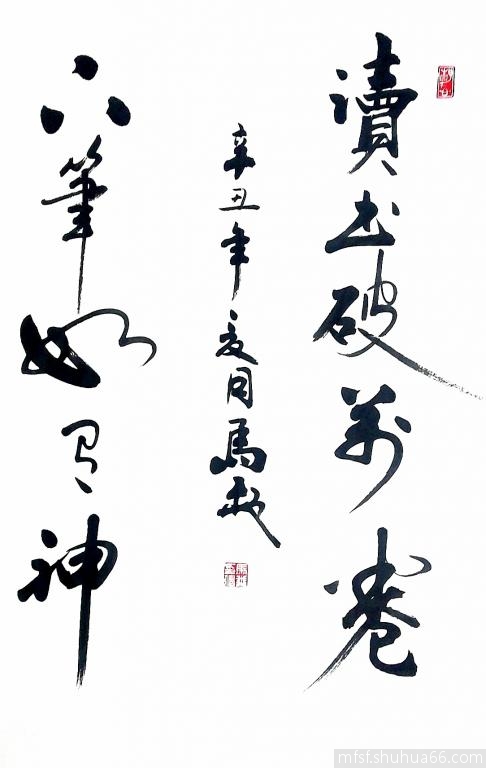 讀书破萬卷
下筆如有神
辛丑年夏月馬越
mfsf.shuhua66.com